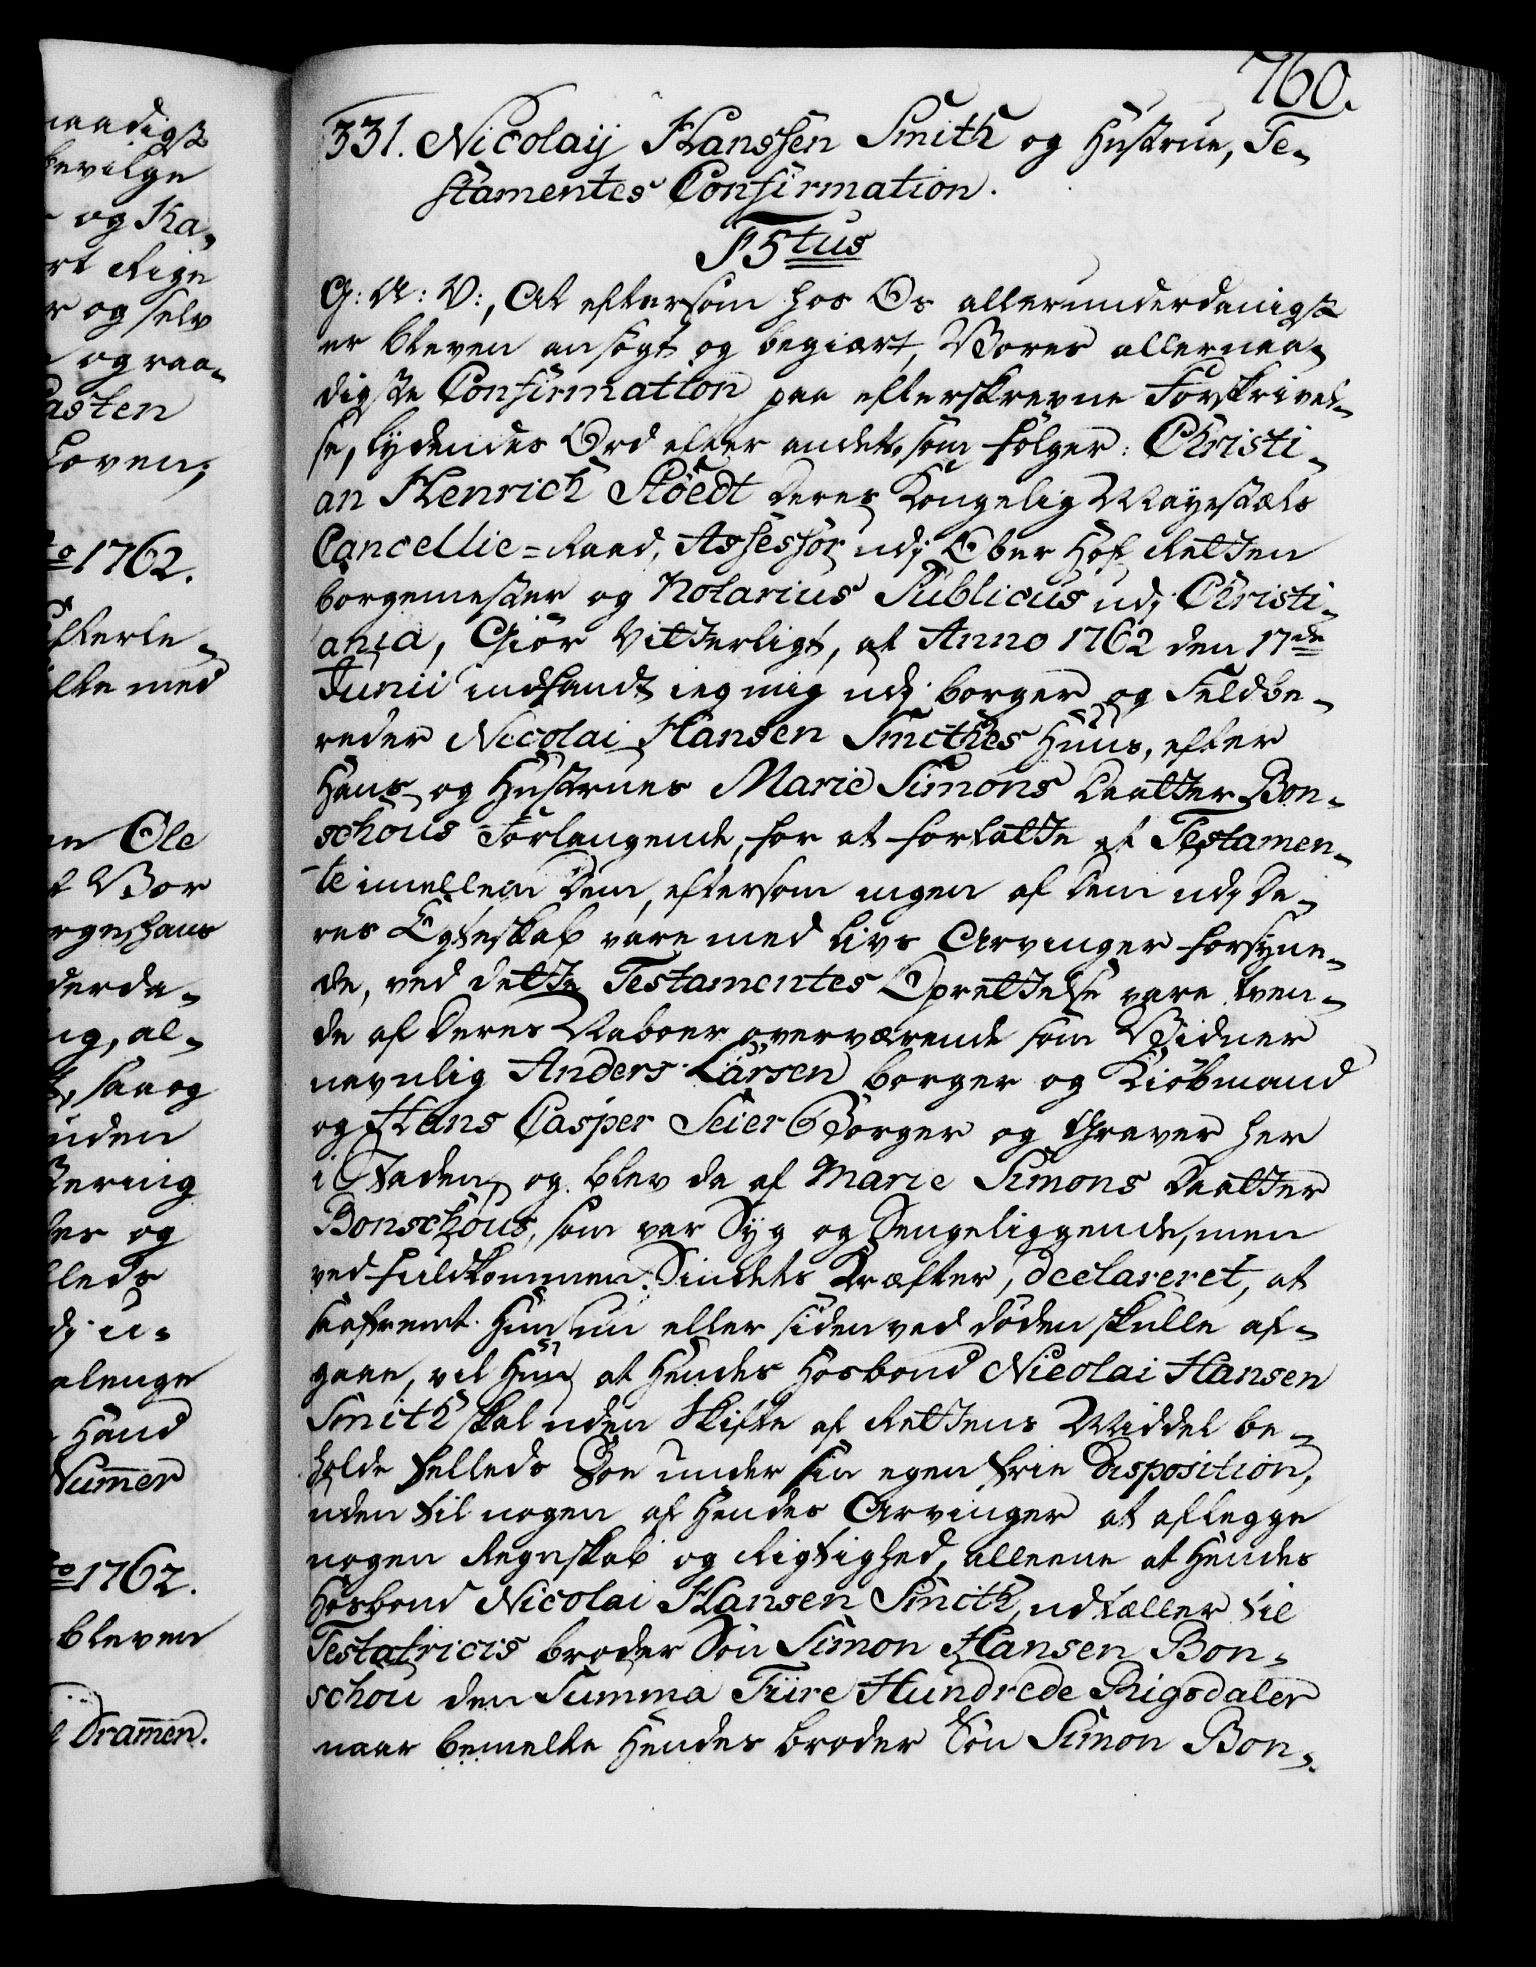 760.
331. Nicolaij Hanssen Smith og Hustrue, Te-
stamentes Confirmation.
F5tus
G: A: V:, At eftersom hos Os allerunderdanigst
er bleven ansögt og begiært, Vores allernaa-
digste Confirmation paa efterskrevne Forskrivel-
se, lydendes Ord efter andet, som fölger: Christi-
an Henrich Stöedt Deres Kongelig Mayestæts
Cancellie=Raad, Assessor udj Ober Hof Retten
borgemester og Notarius Publicus udj Christi-
ania, Giör Vitterligt, at Anno 1762 den 17de
Junii indfandt ieg mig udj borger og Feldbe-
reder Nicolai Hansen Smithes Huus, efter
Hans og Hustrues Marie Simons Daatter Bon-
schous Forlangende, for at forfatte et Testamen-
te imellem Dem, eftersom ingen af Dem udj De-
res Egteskab vare med Livs Arvinger forsyne-
de, ved dette Testamentes Oprettelse vare tven-
de af Deres Naboer overværende som Vidner
navnlig Anders Larsen borger og Kiöbmand
og Hans Casper Seier Borger og Graver her
i Staden, og blev da af Marie Simons Daatter
Bonschous, som var Syg og Sengeliggende, men
ved fuldkommen Sindets Kræfter, declareret, at
saafremt Hun nu eller siden ved döden skulle af-
gaae, vil Hun at Hendes Hosbond Nicolai Hansen
Smith skal uden Skifte af Rettens Middel be-
holde Felleds Boe under sin egen frie Disposition,
uden til nogen af Hendes Arvinger at aflegge
nogen Regnskab og Rigtighed, alleene at Hendes
Hosbond Nicolai Hansen Smith, udtæller til
Testatricis broder Sön Simon Hansen Bon-
schou den Summa Fiire Hundrede Rigsdaler
naar bemelte Hendes broder Sön Simon Bon-
naadigst
bevilge
og Ka-
rt Rige
r og selv
og raa-
asten
Loven;
to 1762.
Efterle-
med
Ole
Vor
derda-
ig, al-
saa og
uden
og
leds
dj u-
alenge
Haand
Num̄er
to 1762.
bleven
Dram̄en.